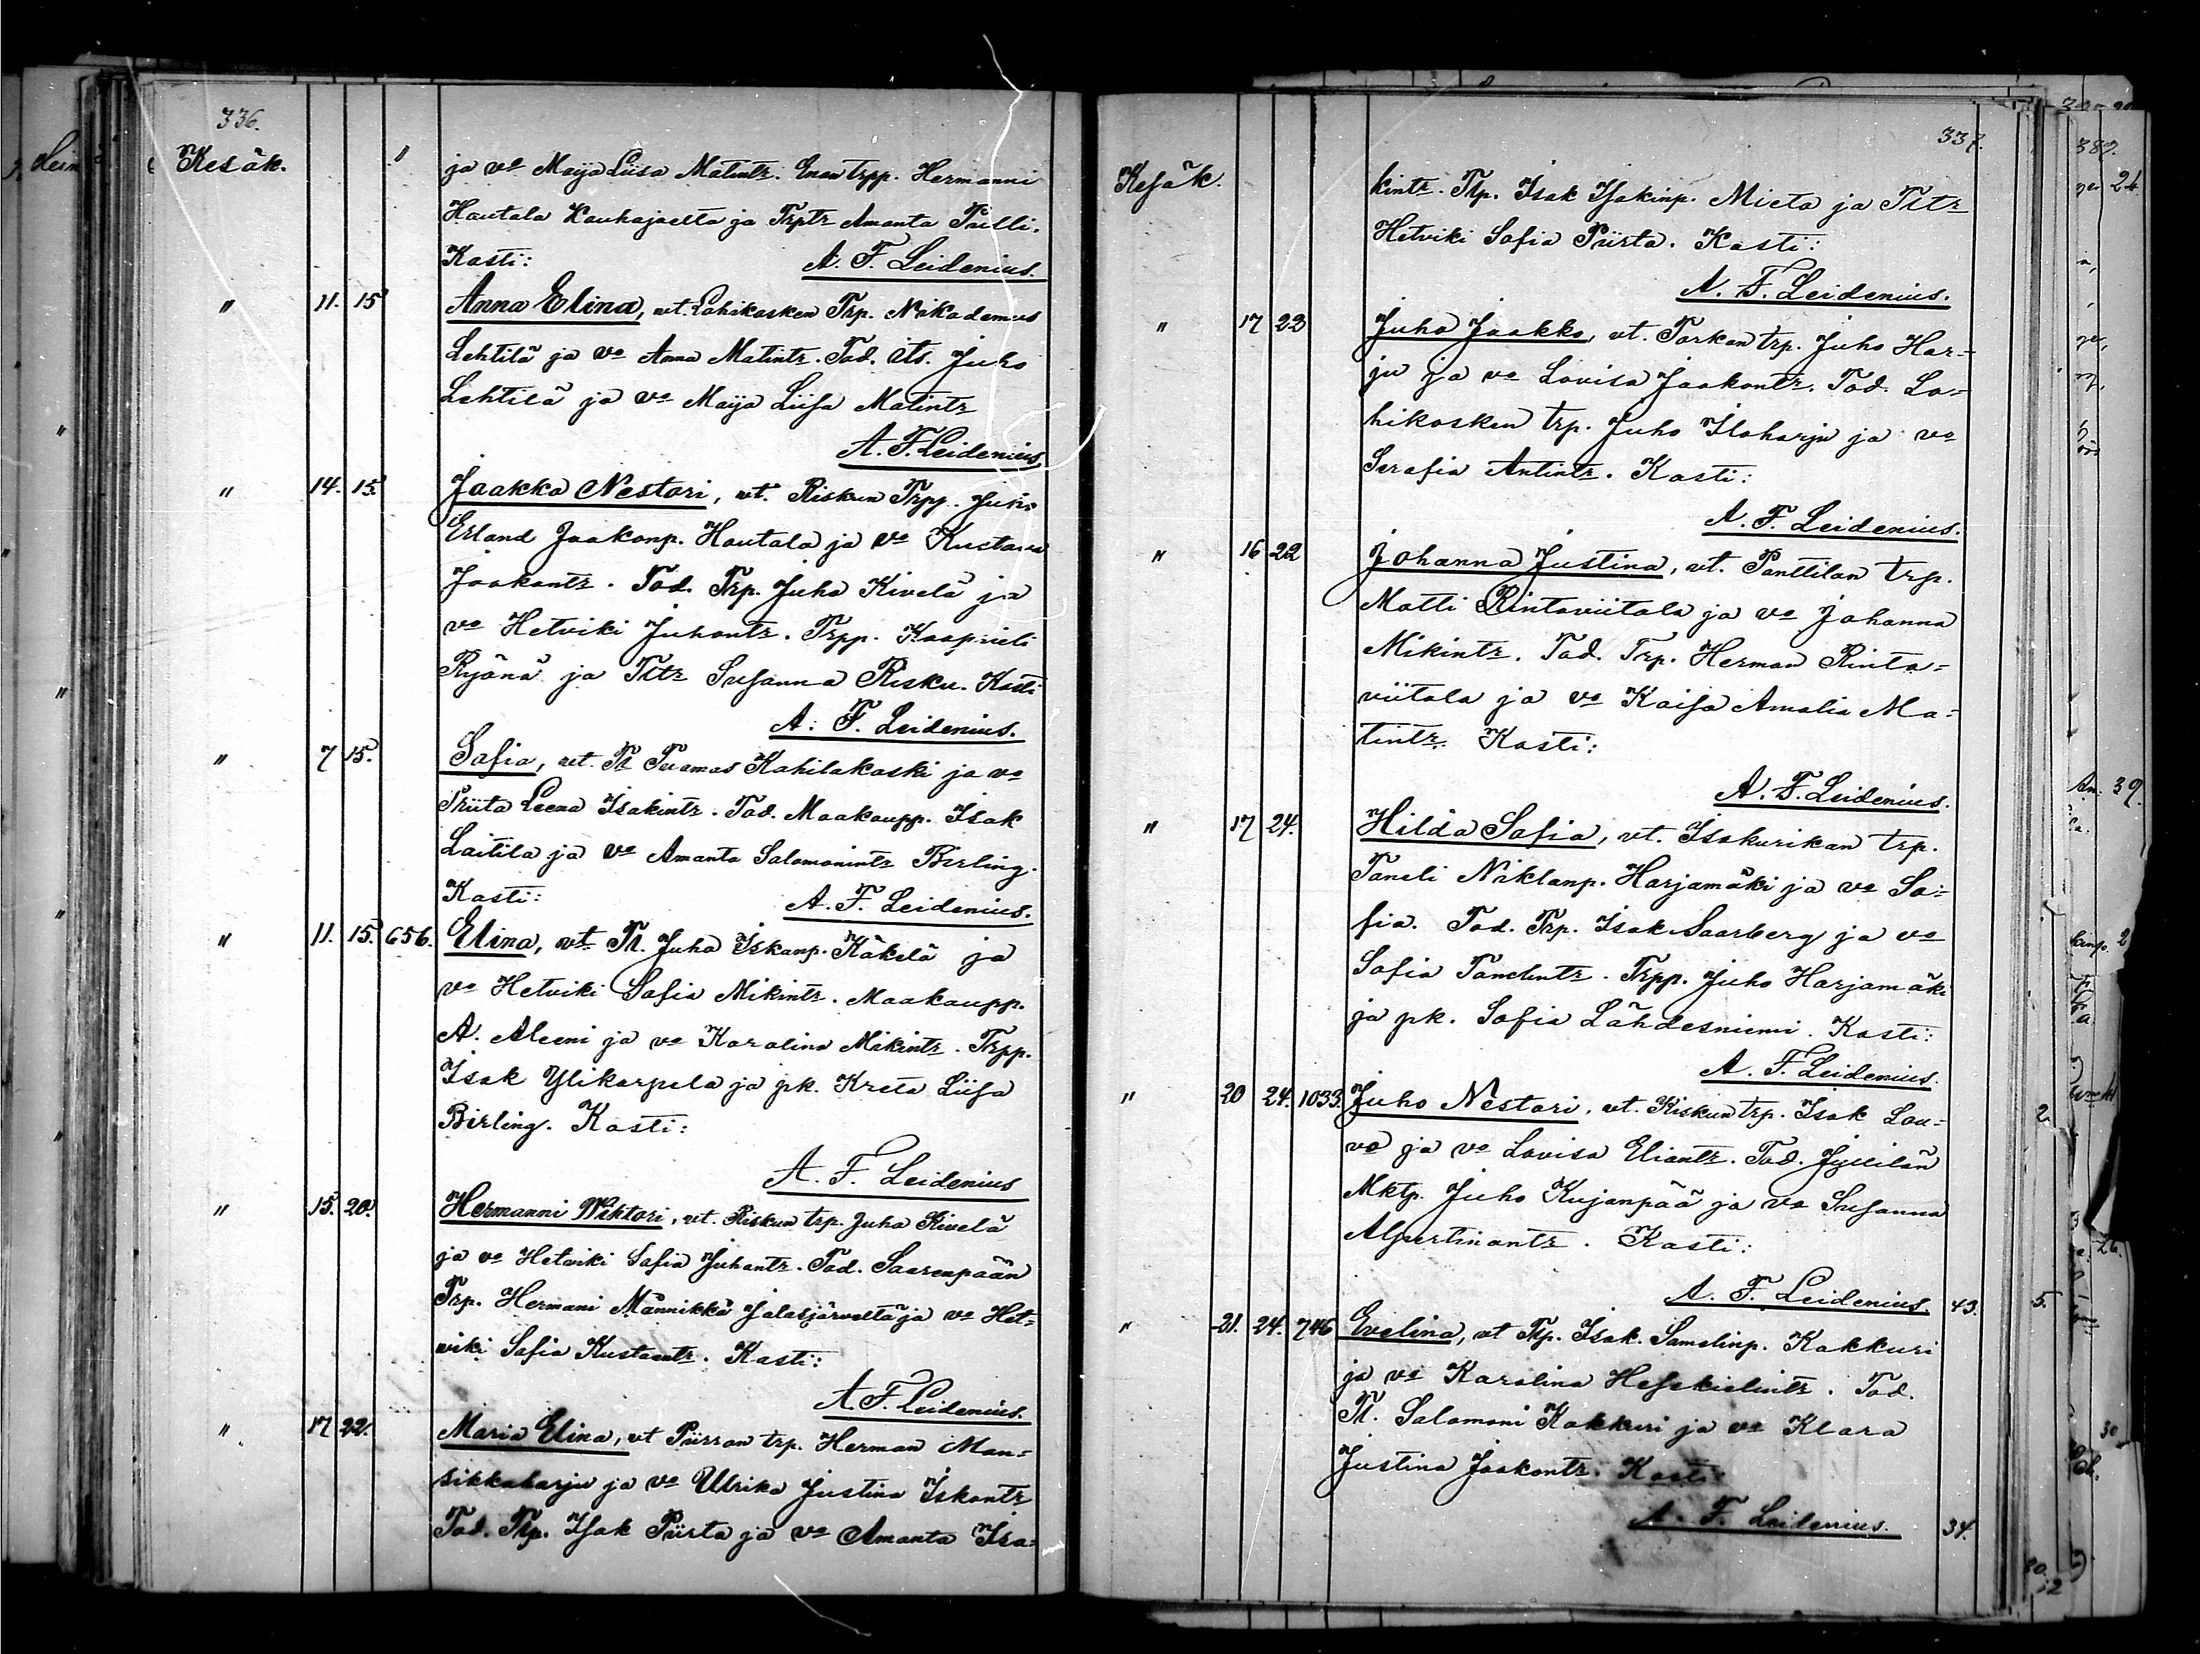 336.
Kesäk.
ja vo Maija Liisa Matintr. Enon trpp. Hermanni
Hautala Kauhajoelta ja Trptr Amanta Pulli.
Kasti:
A. F. Leidenius.
" 11. 15 Anna Elina, vt. Lohikosken Trp. Nikodemus
Lehtilä ja vo Anna Matintr. Tod. its. Juho
Lehtilä ja vo Maija Liisa Matintr
A. F. Leidenius
" 14. 15. Jaakko Nestori, vt. Riskun Trpp. Juho
Erland Jaakonp. Hautala ja vo Kustava
Jaakontr. Tod. Trp. Juho Kivelä ja
vo Hetviki Juhontr. Trpp. Kaaprieli
Ryönä ja Tltr Susanna Risku. Kasti
A. F. Leidenius.
" 7 15. Safia, vt. Tl Tuamas Kahilakoski ja vo
Priita Leena Isakintr. Tod. Maakaupp. Isak
Laitila ja vo Amanta Salomonintr Birling.
Kasti:
A. F. Leidenius.
" 11. 15. 656. Elina, vt. Tl. Juho Iskanp. Käkelä ja
vo Hetviki Safia Mikintr. Maakaupp.
A. Aleeni ja vo Karolina Mikintr. Trpp.
Isak Ylikarpela ja pk. Kreta Liisa
Birling. Kasti:
A. F. Leidenius
" 15. 20. Hermanni Wiktori, vt. Riskun trp. Juho Kivelä
ja vo Hetviki Safia Juhontr. Tod. Saarenpään
Trp. Hermani Männikkö Jalasjärveltä ja vo Het-
wiki Safia Kustaatr. Kasti:
A. F. Leidenius.
" 17 22. Maria Elina, vt Piirron trp. Herman Man-
sikkaharju ja vo Ulrika Justina Iskantr
Tod. Tlp. Isak Piirta ja vo Amanta Isa-
337.
Kesäk.
kintr. Tlp. Isak Isakinp. Mieto ja Tltr
Hetviki Sofia Piirta. Kasti:
A. F. Leidenius.
" 17 23 Juho Jaakko, vt. Torkon trp. Juho Har-
ju ja vo Lovisa Jaakontr. Tod. Lo-
hikosken trp. Juho Iloharju ja vo
Serafia Antintr. Kasti:
A. F. Leidenius.
" 16 22 Johanna Justina, vt. Panttilan trp.
Matti Rintaviitala ja vo Johanna
Mikintr. Tod. Trp. Herman Rinta-
viitala ja vo Kaisa Amalia Ma-
tintr. Kasti:
A. F. Leidenius.
" 17 24. Hilda Safia, vt. Isakurikan trp.
Taneli Niklanp. Harjamäki ja vo So-
fia. Tod. Trp. Isak Saarberg ja vo
Sofia Tanelintr. Trpp. Juho Harjamäki
ja pk. Sofia Lähdesniemi. Kasti:
A. F. Leidenius.
" 20 24. 1033. Juho Nestori, vt. Kiskun trp. Isak Lou-
vo ja vo Lovisa Eliantr. Tod. Jyllilän
Mktp. Juho Kujanpää ja vo Susanna
Alpertinantr. Kasti:
A. F. Leidenius. 43.
" 21. 24. 746 Evelina, vt Tlp. Isak Samelinp. Kakkuri
ja vo Karolina Hesekielintr. Tod.
Tl. Salamoni Kakkuri ja vo Klara
Justina Jaakontr. Kasti:
A. F. Leidenius. 34.